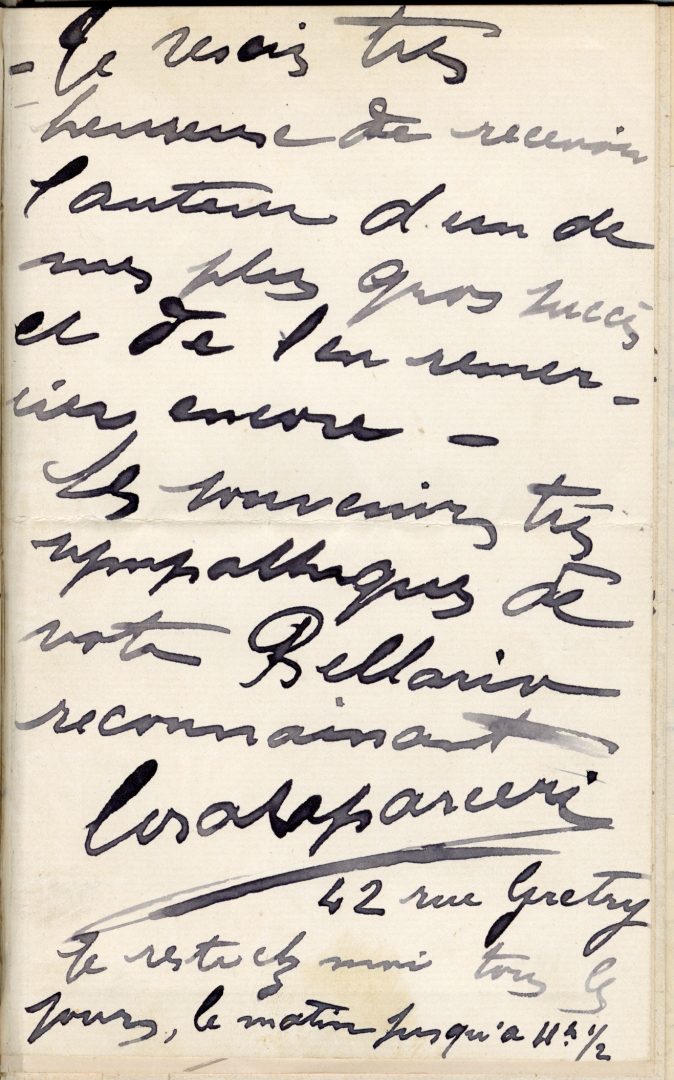 - Je serais très
heureuse de recevoir
l'auteur d'un de
mes plus gros succès
et de l'en remer-
cier encore -
Les souvenirs très
sympathiques de
votre Bellario
reconnaissant
42 rue Gretry
Je reste chez moi tous les
jours, le matin jusqu'à 11h 1/2